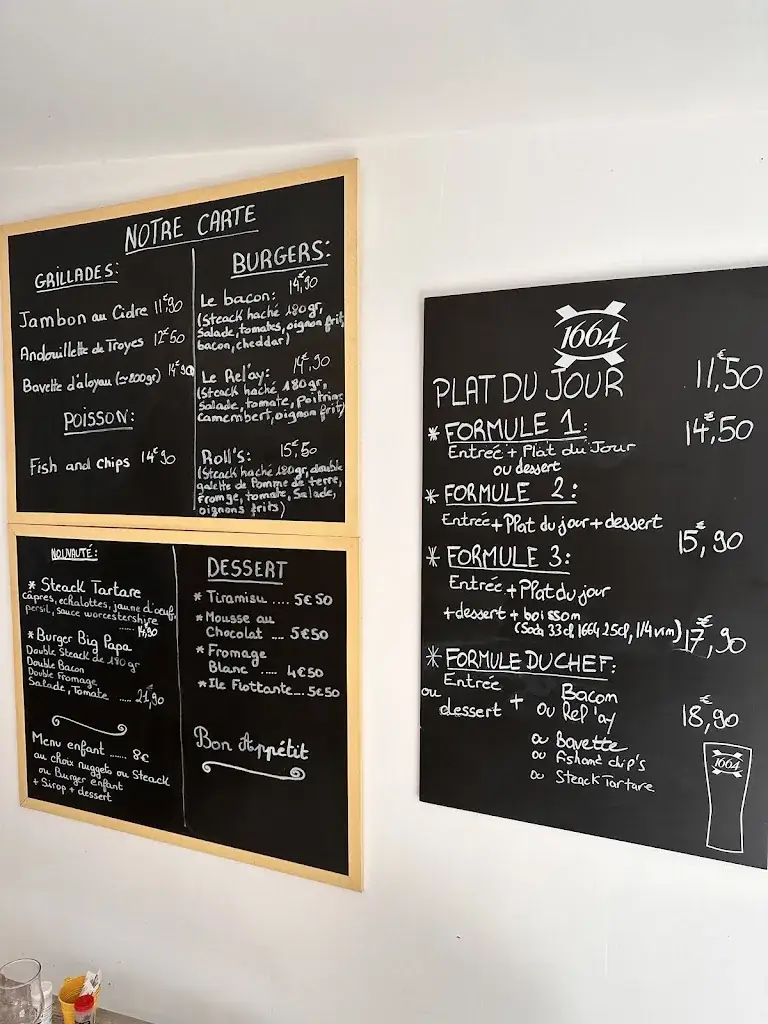 NOTRE CARTE
GRILLADES:
Jambon au Cidre 11€90
Andouillette de Troyes 12€50
Bavette d'aloyau (≃200gr) 14€90
POISSON:
Fish and chips 14€90
BURGERS:
Le bacon: 14€,90
(Steack haché 180gr,
Salade, tomates, oignon frit,
bacon, cheddar)
Le Rel'ay: 14€,90
(Steack haché 180gr,
Salade, tomate, Poitrine
Camembert, oignon frit)
Roll's: 15€,50
(Steack haché 180gr, double
galette de Pomme de terre,
Fromge, tomate, Salade,
oignons frits)
NOUVAUTÉ:
* Steack Tartare
câpres, echalottes, jaune d'oeuf,
persil, sauce worcestershire
...... 14,90
* Burger Big Papa
Double Steack de 180gr
Double Bacon
Double Fromage
Salade, Tomate ..... 21,90
Menu enfant ...... 8€
au choix nuggets ou Steack
ou Burger enfant
+ Sirop + dessert
DESSERT
* Tiramisu .... 5€50
* Mousse au
Chocolat .... 5€50
* Fromage
Blanc ..... 4€50
* Ile Flottante... 5€50
Bon Appétit
1664
PLAT DU JOUR 11€,50
* FORMULE 1: 14€,50
Entrée + Plat du Jour
ou dessert
* FORMULE 2:
Entrée + Plat du jour + dessert
15€,90
* FORMULE 3:
Entrée + Plat du jour
+ dessert + boisson
(Soda 33cl, 1664 25cl, 1/4 vin) 17€,90
* FORMULE DU CHEF:
Entrée
ou
dessert + Bacon
ou Rel'ay 18€,90
ou Bavette
ou fish and chip's
ou Steack Tartare
1664